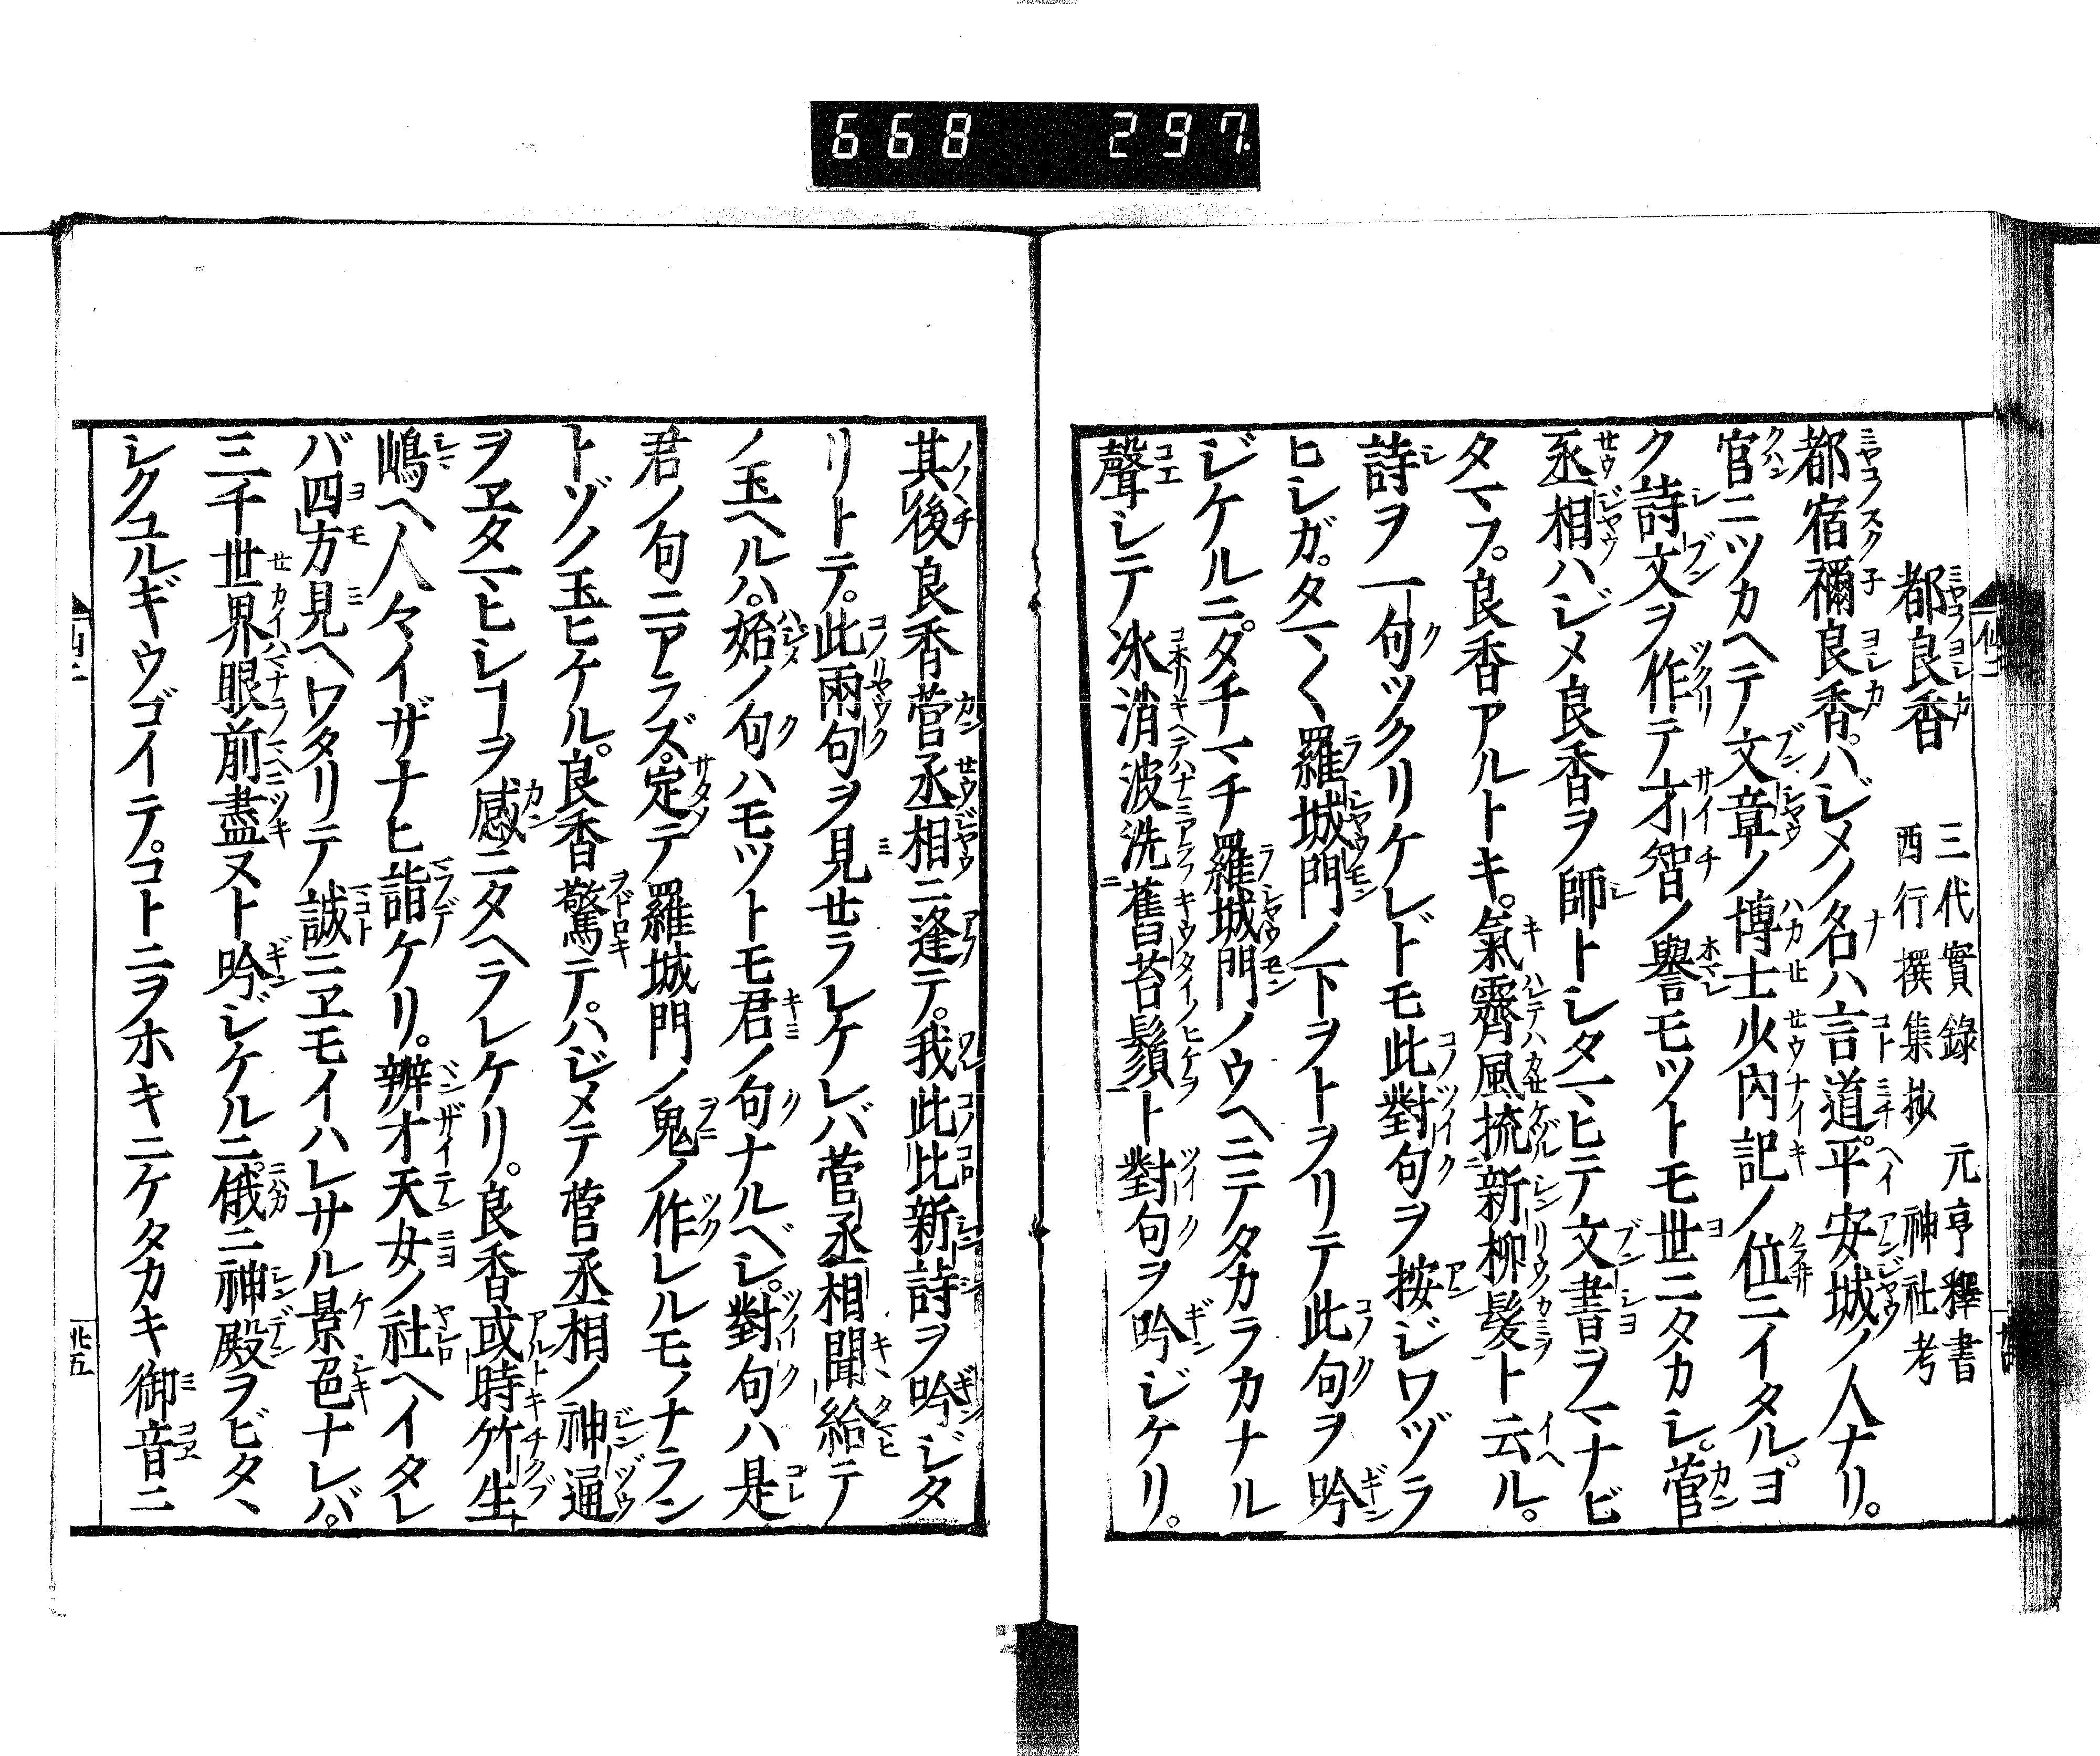 668 297
都良香 三代實錄 元亨釋書
西行撰集抄 神社考
都宿禰良香。ハジメノ名ハ言道。平安城ノ人ナリ。
官ニツカヘテ文章ノ博士少内記ノ位ニイタル。ヨ
ク詩文ヲ作テ才智ノ譽モツトモ世ニタカシ。菅
丞相ハジメ良香ヲ師トシタマヒテ文書ヲマナビ
タマフ。良香アルトキ。氣霽風梳新柳髮ト云ル。
詩ヲ一句ツクリケレドモ此對句ヲ按ジワヅラ
ヒシガ。タマ〱羅城門ノ下ヲトヲリテ此句ヲ吟
ジケルニ。タチマチ羅城門ノウヘニテタカラカナル
聲シテ氷消波洗舊苔鬚ト對句ヲ吟ジケリ。
其後良香菅丞相ニ逢テ。我此比新詩ヲ吟ジタ
リトテ。此兩句ヲ見せラレケレバ菅丞相聞給テ
ノ玉ヘルハ。始ノ句ハモツトモ君ノ句ナルベシ。對句ハ是
君ノ句ニアラズ。定テ羅城門ノ鬼ノ作レルモノナラン
トゾノ玉ヒケル。良香驚テ。ハジメテ菅丞相ノ神通
ヲヱタマヒシヿヲ感ニタヘラレケリ。良香或時竹生
嶋ヘ人々イザナヒ詣ケリ。辨才天女ノ社ヘイタレ
バ四方見ヘワタリテ誠ニヱモイハレサル景色ナレバ。
三千世界眼前盡ヌト吟ジケルニ。俄ニ神殿ヲビタヽ
シクユルギウゴイテ。コトニヲホキニケタカキ御音ニ